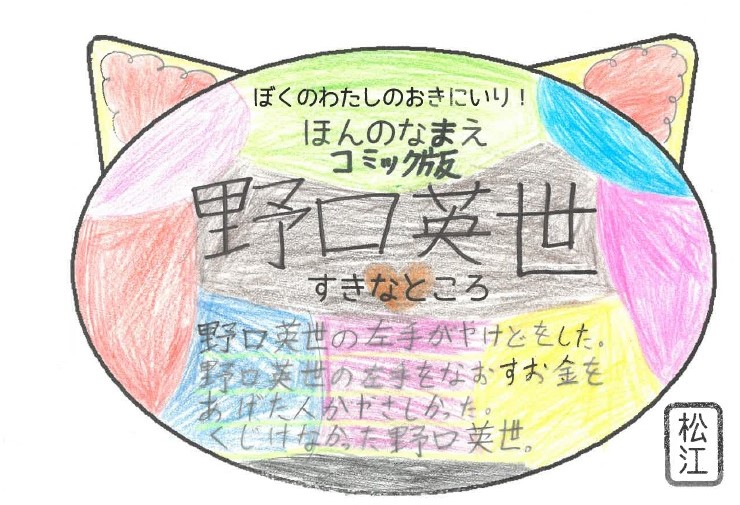 ぼくのわたしのおきにいり！
ほんのなまえ
コミック版
野口英世
すきなところ
野口英世の左手がやけどをした。
野口英世の左手をなおすお金を
あげた人がやさしかった。
くじけなかった野口英世。
松江